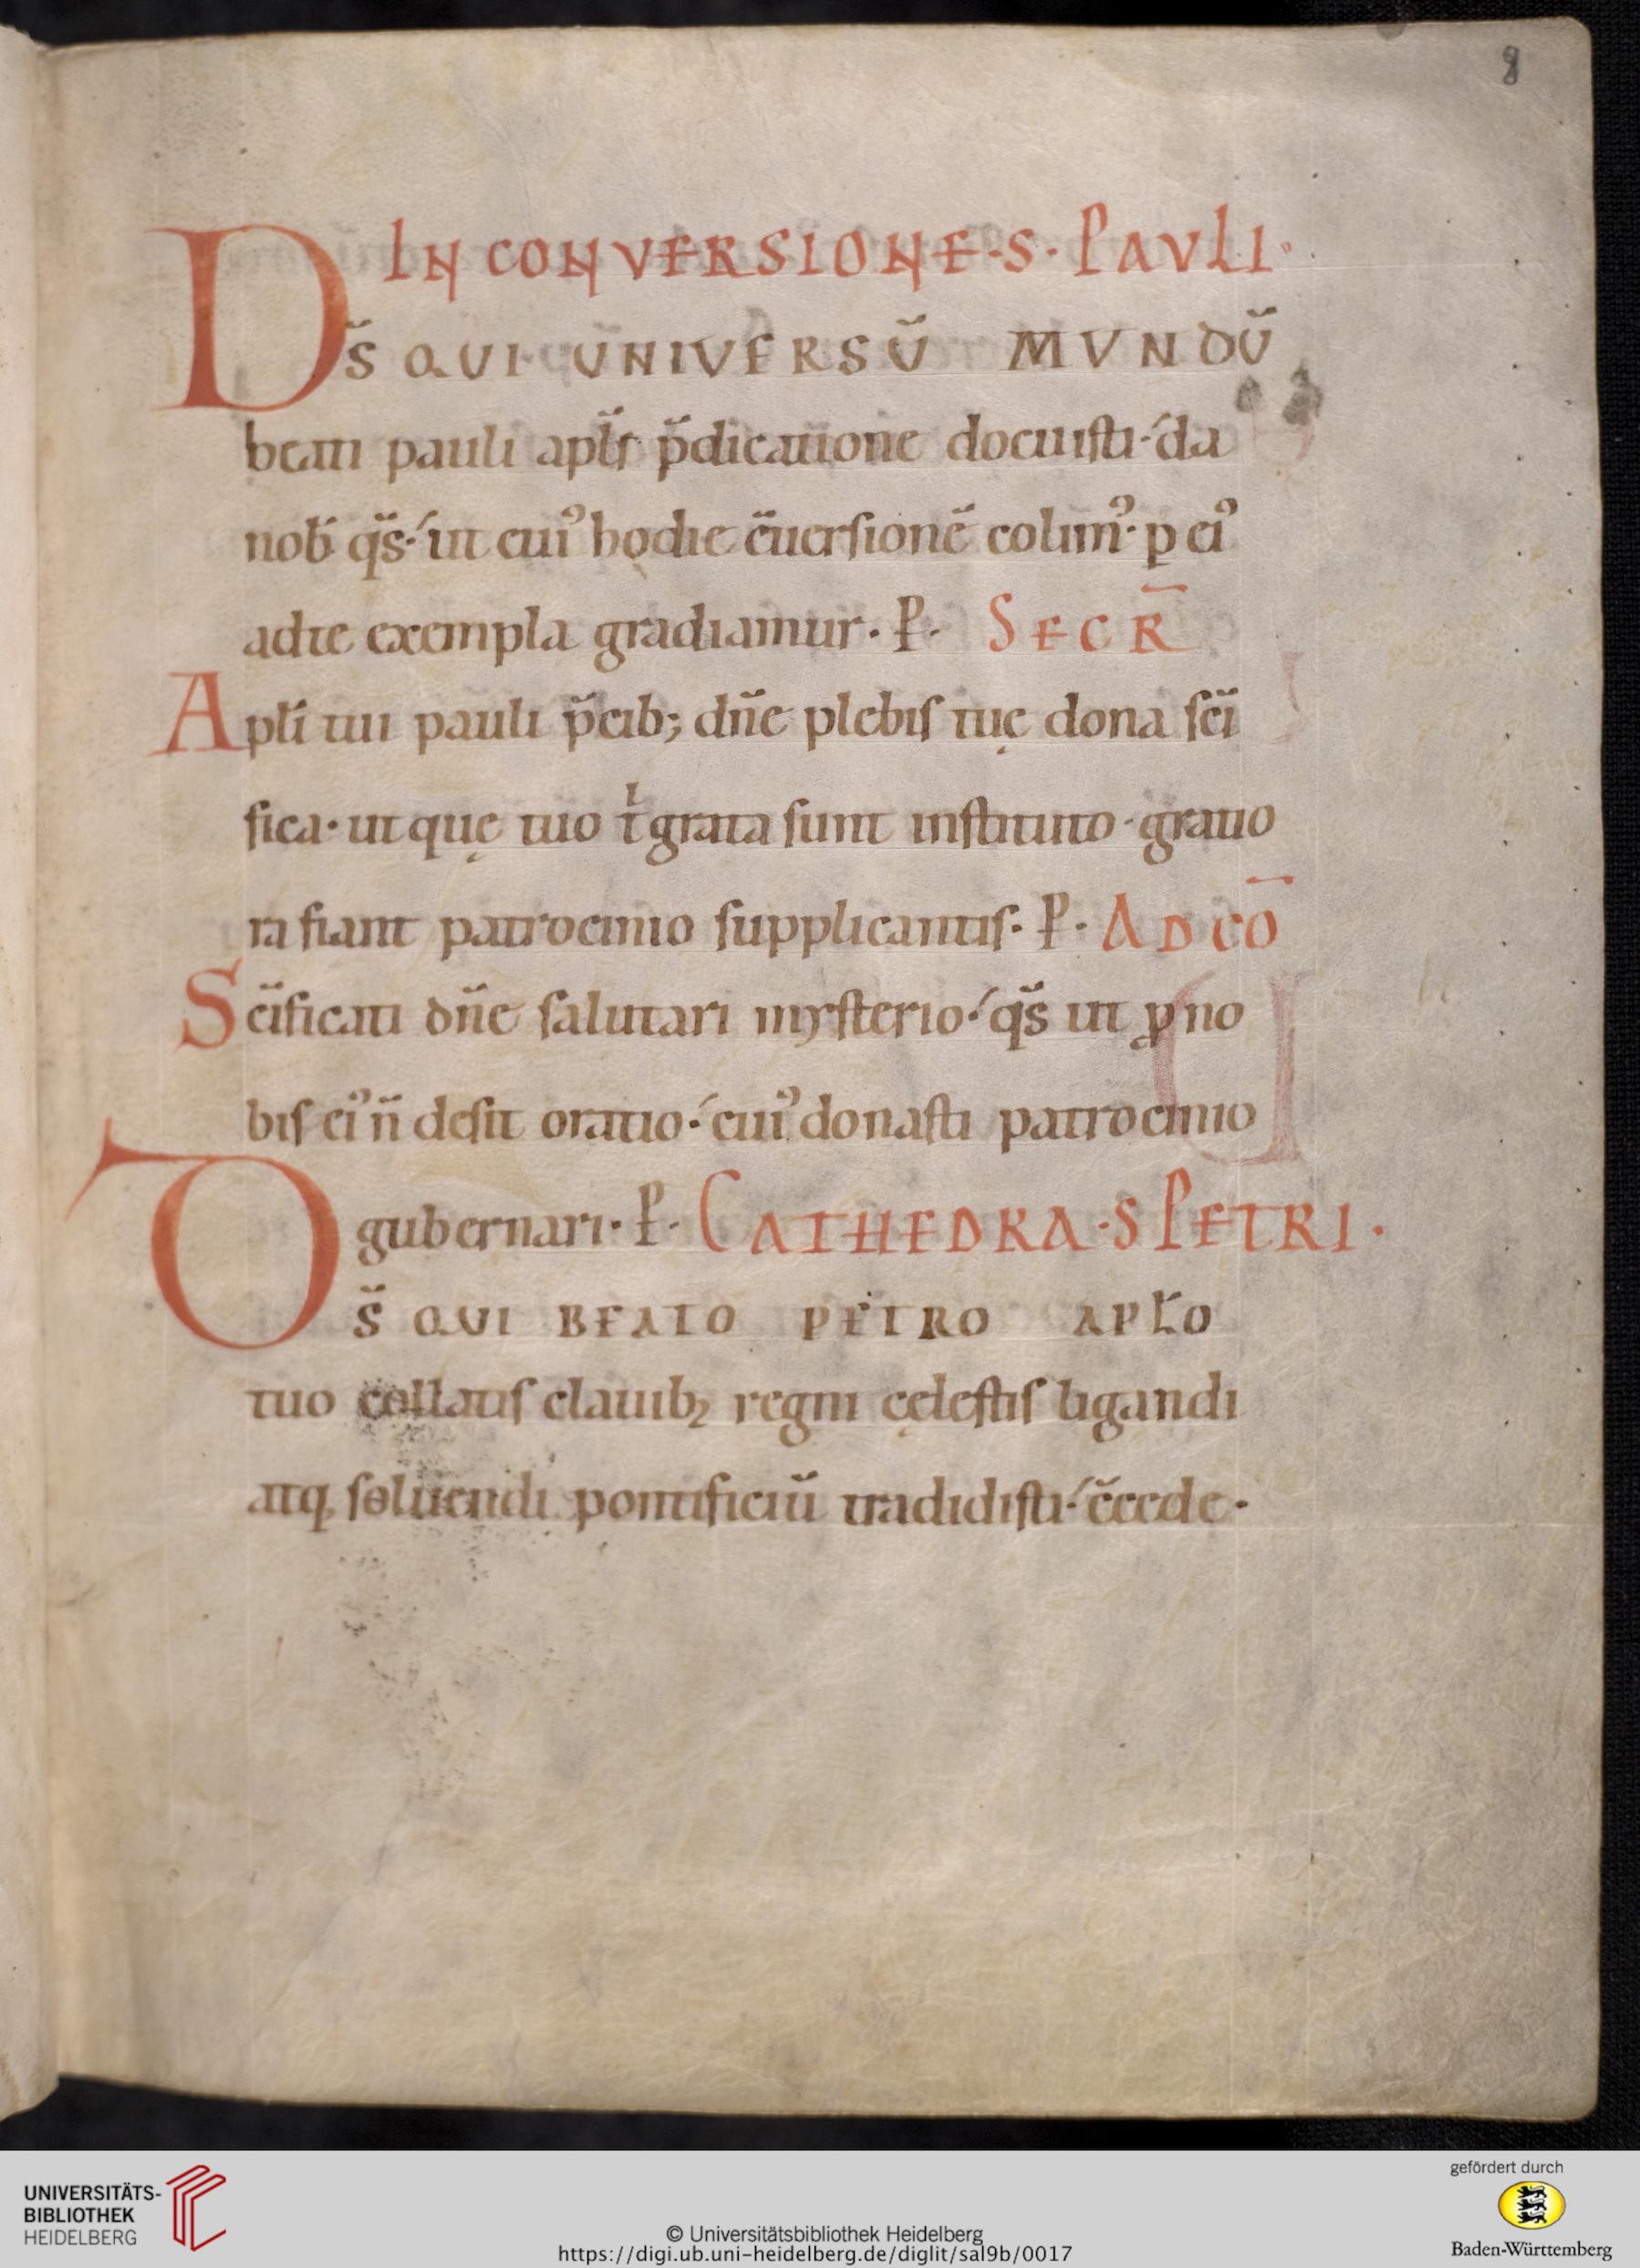 8
IN CONVERSIONE·S·PAVLI·
Ds̄ QUI UNIVERSŪ MVNDŪ
beati pauli apłi p̄dicatione docuisti· da
nob̄ qs̄· ut cuiꝰ hodie c̄uersionē colimꝰ· p eiꝰ
adte exempla gradiamur· P· SECR̄
Apłi tui pauli p̄cib; dn̄e plebis tuę dona sc̄i
fica· ut quę tuo t̄ grata sunt instituto· gratio
ra fiant patrocinio supplicantis· P· AD CŌ
Sc̄ificati dn̄e salutari mysterio· qs̄ ut ꝓ no
bis eiꝰ n̄ desit oratio· cuiꝰ donasti patrocinio
gubernari· P· CATHEDRA·S PETRI·
Ds̄ QUI BEATO PETRO APŁO
tuo collatis clauibꝫ regni cęlestis ligandi
atq; soluendi pontificiū tradidisti· c̄cede·
UNIVERSITÄTS-
BIBLIOTHEK
HEIDELBERG
© Universitätsbibliothek Heidelberg
https://digi.ub.uni-heidelberg.de/diglit/sal9b/0017
gefördert durch
Baden-Württemberg